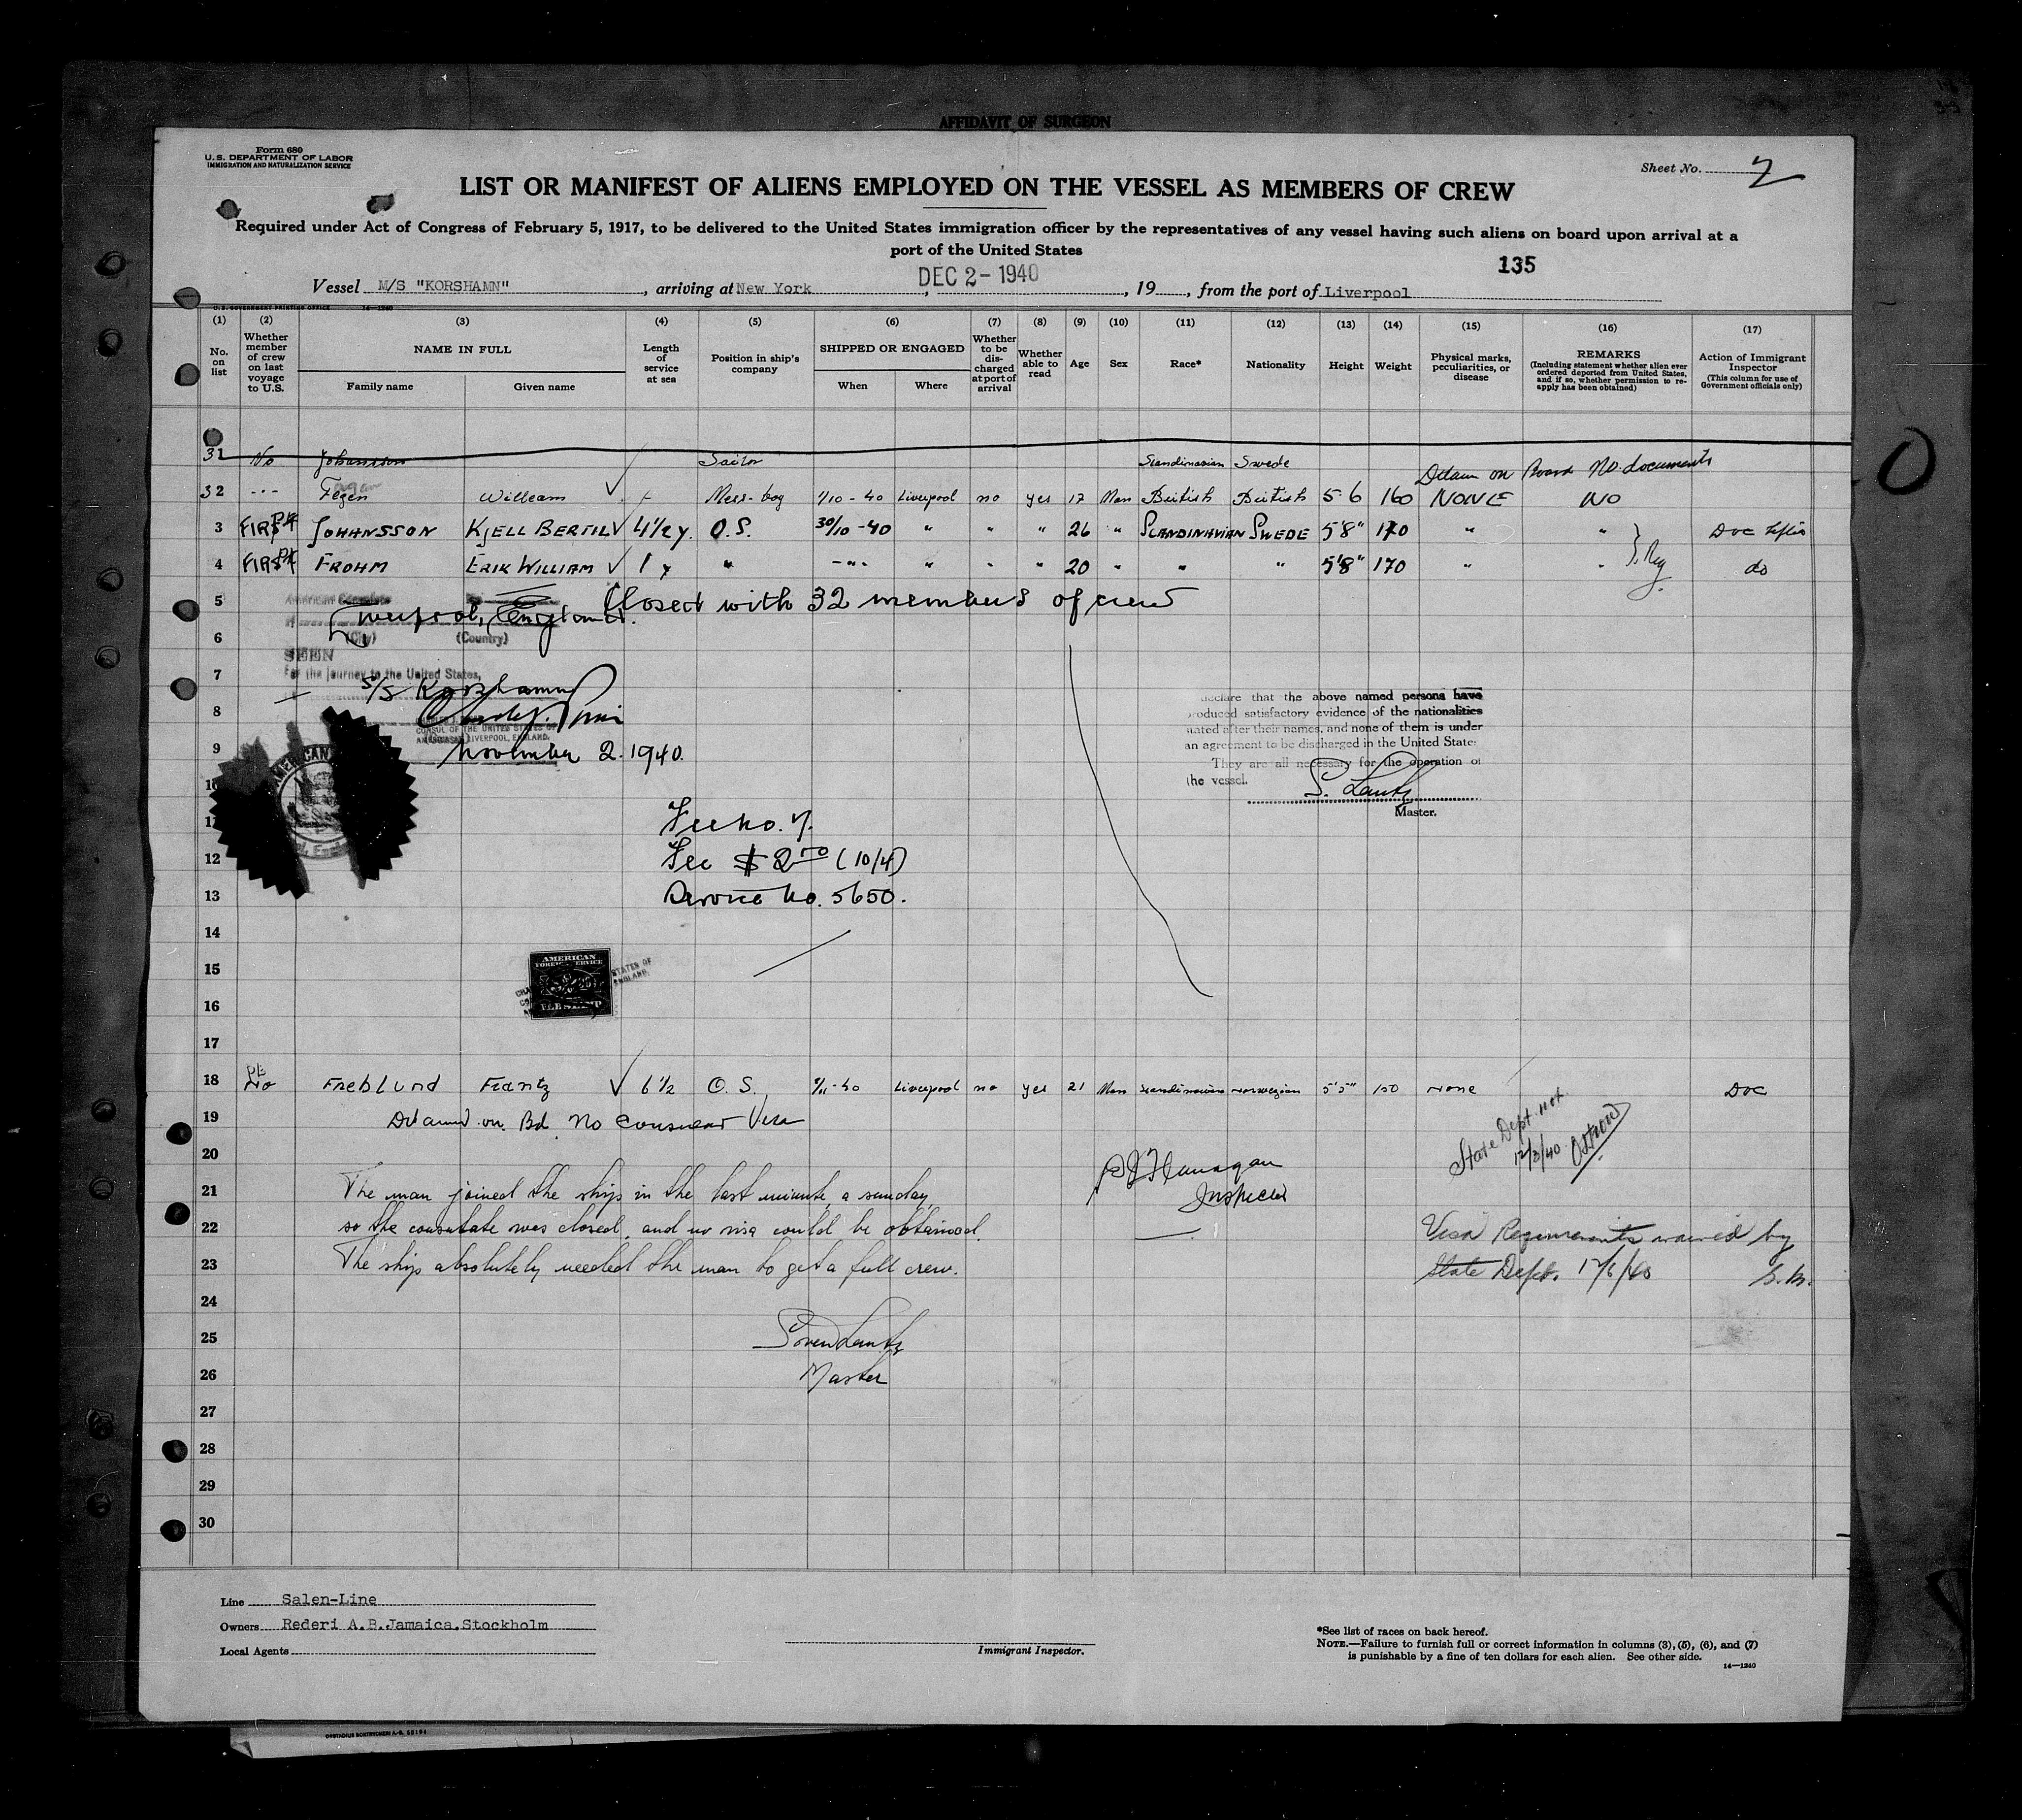 AFFIDAVIT OF SURGEON
Form 680
U.S. DEPARTMENT OF LABOR
IMMIGRATION AND NATURALIZATION SERVICE
Sheet No. 2
LIST OR MANIFEST OF ALIENS EMPLOYED ON THE VESSEL AS MEMBERS OF CREW
Required under Act of Congress of February 5, 1917, to be delivered to the United States immigration officer by the representatives of any vessel having such aliens on board upon arrival at a
port of the United States
135
Vessel M/S "KORSHAMN", arriving at New York, DEC 2 - 1940, 19, from the port of Liverpool
U.S. GOVERNMENT PRINTING OFFICE 14-1240
(1) (2) (3) (4) (5) (6) (7) (8) (9) (10) (11) (12) (13) (14) (15) (16) (17)
No. on list
Whether member of crew on last voyage to U.S.
NAME IN FULL
Family name
Given name
Length of service at sea
Position in ship's company
SHIPPED OR ENGAGED
When
Where
Whether to be discharged at port of arrival
Whether able to read
Age
Sex
Race*
Nationality
Height
Weight
Physical marks, peculiarities, or disease
REMARKS
(Including statement whether alien ever ordered deported from United States, and if so, whether permission to reapply has been obtained)
Action of Immigrant Inspector
(This column for use of Government officials only)
31 No Johansson Sailor Scandinavian Swede
Detain on Board No documents
32 Fegen William Mess-boy 1/10-40 Liverpool no yes 17 Man British British 5-6 160 NONE NO
3 FIRST JOHANSSON KJELL BERTIL 4½ y. O.S. 30/10-40 " " " 26 " SCANDINAVIAN SWEDE 5'8" 170 " " Doc
4 FIRST FROHM ERIK WILLIAM 1 y " -"- " " " 20 " " " 5'8" 170 " " do
5 Closed with 32 members of crew
Liverpool, England.
6 (City) (Country)
SEEN
7 For the journey to the United States,
S/S Korshamn
8
CONSUL OF THE UNITED STATES OF
AMERICA LIVERPOOL, ENGLAND.
9 November 2. 1940.
declare that the above named persons have
produced satisfactory evidence of the nationalities
stated after their names, and none of them is under
an agreement to be discharged in the United States
They are all necessary for the operation of
the vessel.
S. Lantz
Master.
10
11 Fee no. 7.
12 Fee $ 2.00 (10/4)
13 Service No. 5650.
14
15
AMERICAN
FOREIGN SERVICE
16
17
18 No Freblund Frantz 6½ O.S. Liverpool no yes 21 Man Scandinavian Norwegian 5'5" 150 None Doc
19 Detained on Bd. No Consular Visa
State Dept. not.
12/3/40
20
P J Flanagan
Inspector
21 The man joined the ship in the last minute, a sunday,
22 so the consulate was closed, and no visa could be obtained.
23 The ship absolutely needed the man to get a full crew.
Visa Requirements waived by
State Dept. 12/6/40
24
25 Sven Lantz
26 Master
27
28
29
30
Line Salen-Line
Owners Rederi A.B.Jamaica.Stockholm
Local Agents
Immigrant Inspector.
*See list of races on back hereof.
NOTE.—Failure to furnish full or correct information in columns (3), (5), (6), and (7)
is punishable by a fine of ten dollars for each alien. See other side.
14—1240